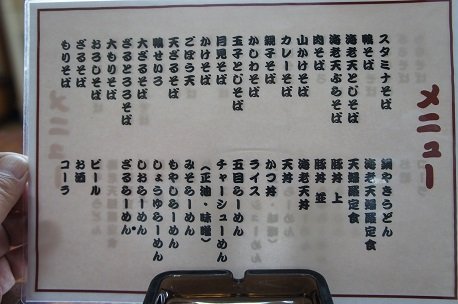 メニュー
スタミナそば
鴨そば
海老天とじそば
海老天ぷらそば
肉そば
山かけそば
カレーそば
親子そば
かしわそば
玉子とじそば
月見そば
かけそば
ごぼう天
天ざるそば
鴨せいろ
大ざるそば
ざるとろろそば
大もりそば
おろしそば
ざるそば
もりそば
鍋やきうどん
海老天婦羅定食
天婦羅定食
豚丼 上
豚丼 並
海老天丼
天丼
かつ丼
ライス
五目らーめん
チャーシューめん
(正油・味噌)
みそらーめん
もやしらーめん
しょうゆらーめん
しおらーめん
ざるらーめん
ビール
お酒
コーラ